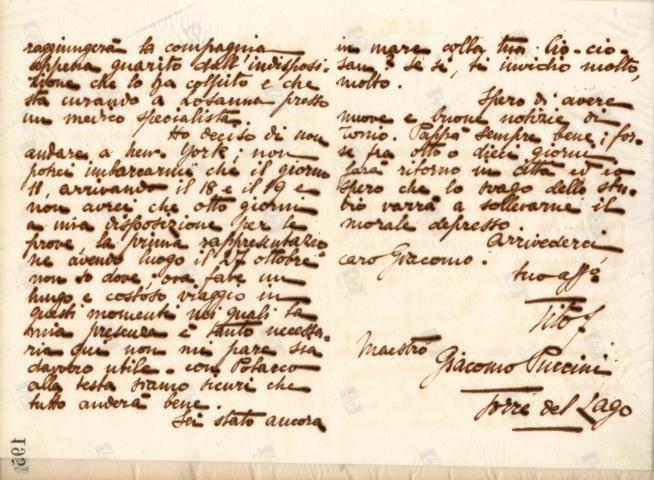 raggiungerà la compagnia
appena guarito dall'indisposi-
zione che lo ha colpito e che
sta curando a Losanna presso
un medico specialista.
Ho deciso di non
andare a New York; non
potrei imbarcarmi che il giorno
11, arrivando il 18 e il 19 e
non avrei che otto giorni
a mia disposizione per le
prove, la prima rappresentazio
ne avendo luogo il 27 ottobre
non so dove; ora fare un
lungo e costoso viaggio in
questi momenti nei quali la
mia presenza è tanto necessa-
ria qui non mi pare sia
davvero utile. con Polacco
alla testa siamo sicuri che
tutto anderà bene.
Sei stato ancora
in mare colla tua Cio-cio-
san? se sì, ti invidio molto,
molto.
Spero di avere
nuove e buone notizie di
Tonio. Pappà sempre bene; for-
se fra otto o dieci giorni
farà ritorno in città ed io
spero che lo svago dello stu-
dio varrà a sollevarne il
morale depresso.
Arrivederci
caro Giacomo.
tuo affº
Tito
Maestro
Giacomo Puccini
Torre del Lago